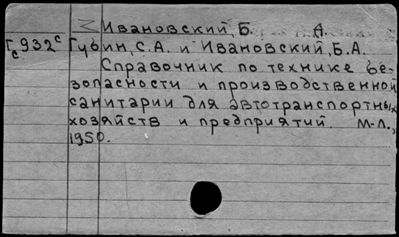 Ивановский, Б. А.
Гс932с Губин, С.А. и Ивановский, Б.А.
Справочник по технике бе-
зопасности и производственной
санитарии для автотранспортных
хозяйств и предприятий. М.-Л.,
1950.